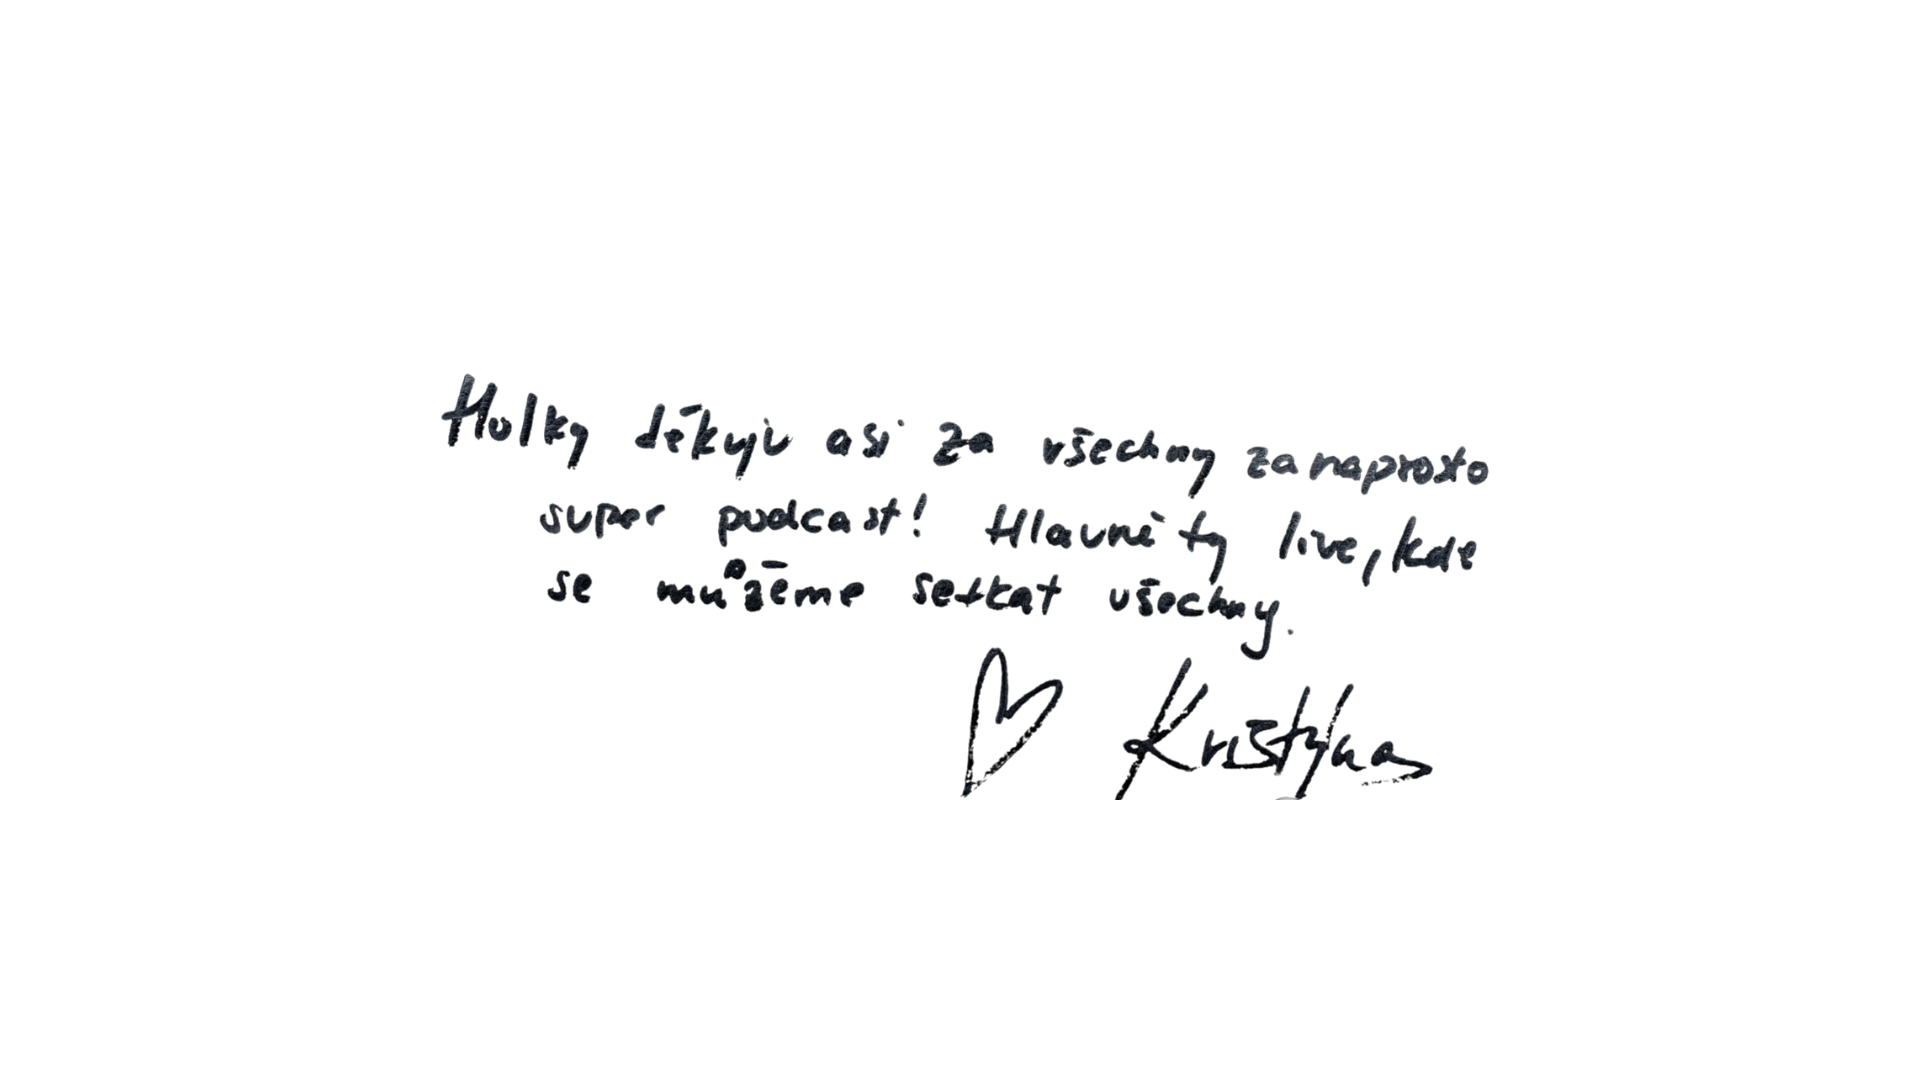 Holky děkuju asi za všechny za naprosto
super podcast! Hlavně ty live, kde
se můžeme setkat všechny.
Kristýna